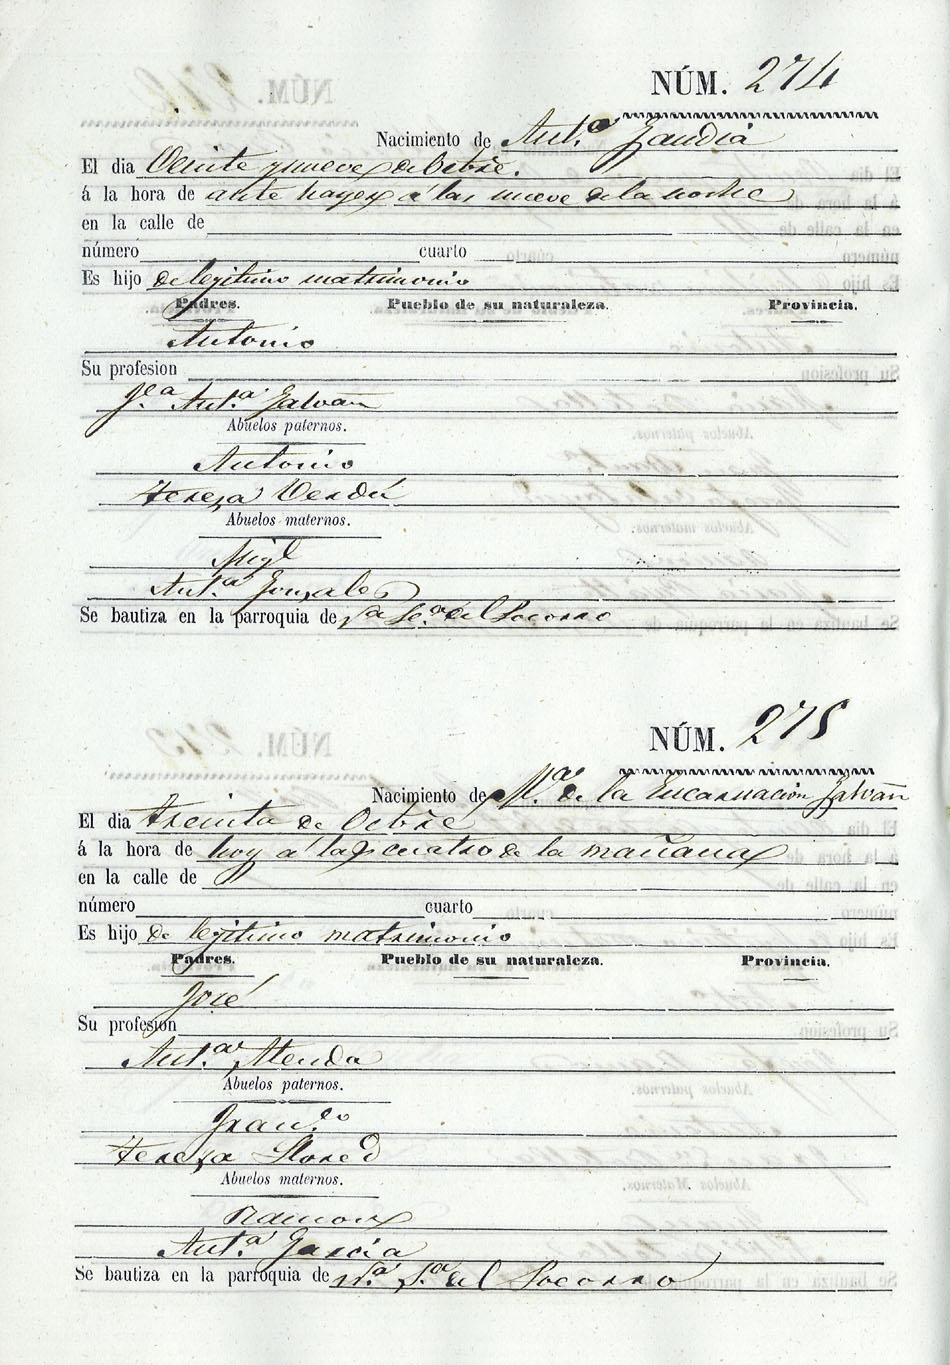 NÚM. 274
Nacimiento de Ant.ª Gandia
El dia Veinte y nueve de Octbre.
á la hora de ante hayer á las nueve de la noche
en la calle de
número cuarto
Es hijo de legitimo matrimonio
Padres. Pueblo de su naturaleza. Provincia.
Antonio
Su profesion
Ant.ª Galvañ
Abuelos paternos.
Antonio
Teresa Verdú
Abuelos maternos.
Migl
Ant.ª Gonzales
Se bautiza en la parroquia de Sª del Socorro
NÚM. 275
Nacimiento de M.ª de la Encarnación Galvañ
El dia treinta de Octbre
á la hora de hoy á las cuatro de la mañana
en la calle de
número cuarto
Es hijo de legitimo matrimonio
Padres. Pueblo de su naturaleza. Provincia.
José
Su profesion
Ant.ª Alenda
Abuelos paternos.
Fran.co
Teresa Llored
Abuelos maternos.
Ramon
Ant.ª Garcia
Se bautiza en la parroquia de N.ª S.ª del Socorro